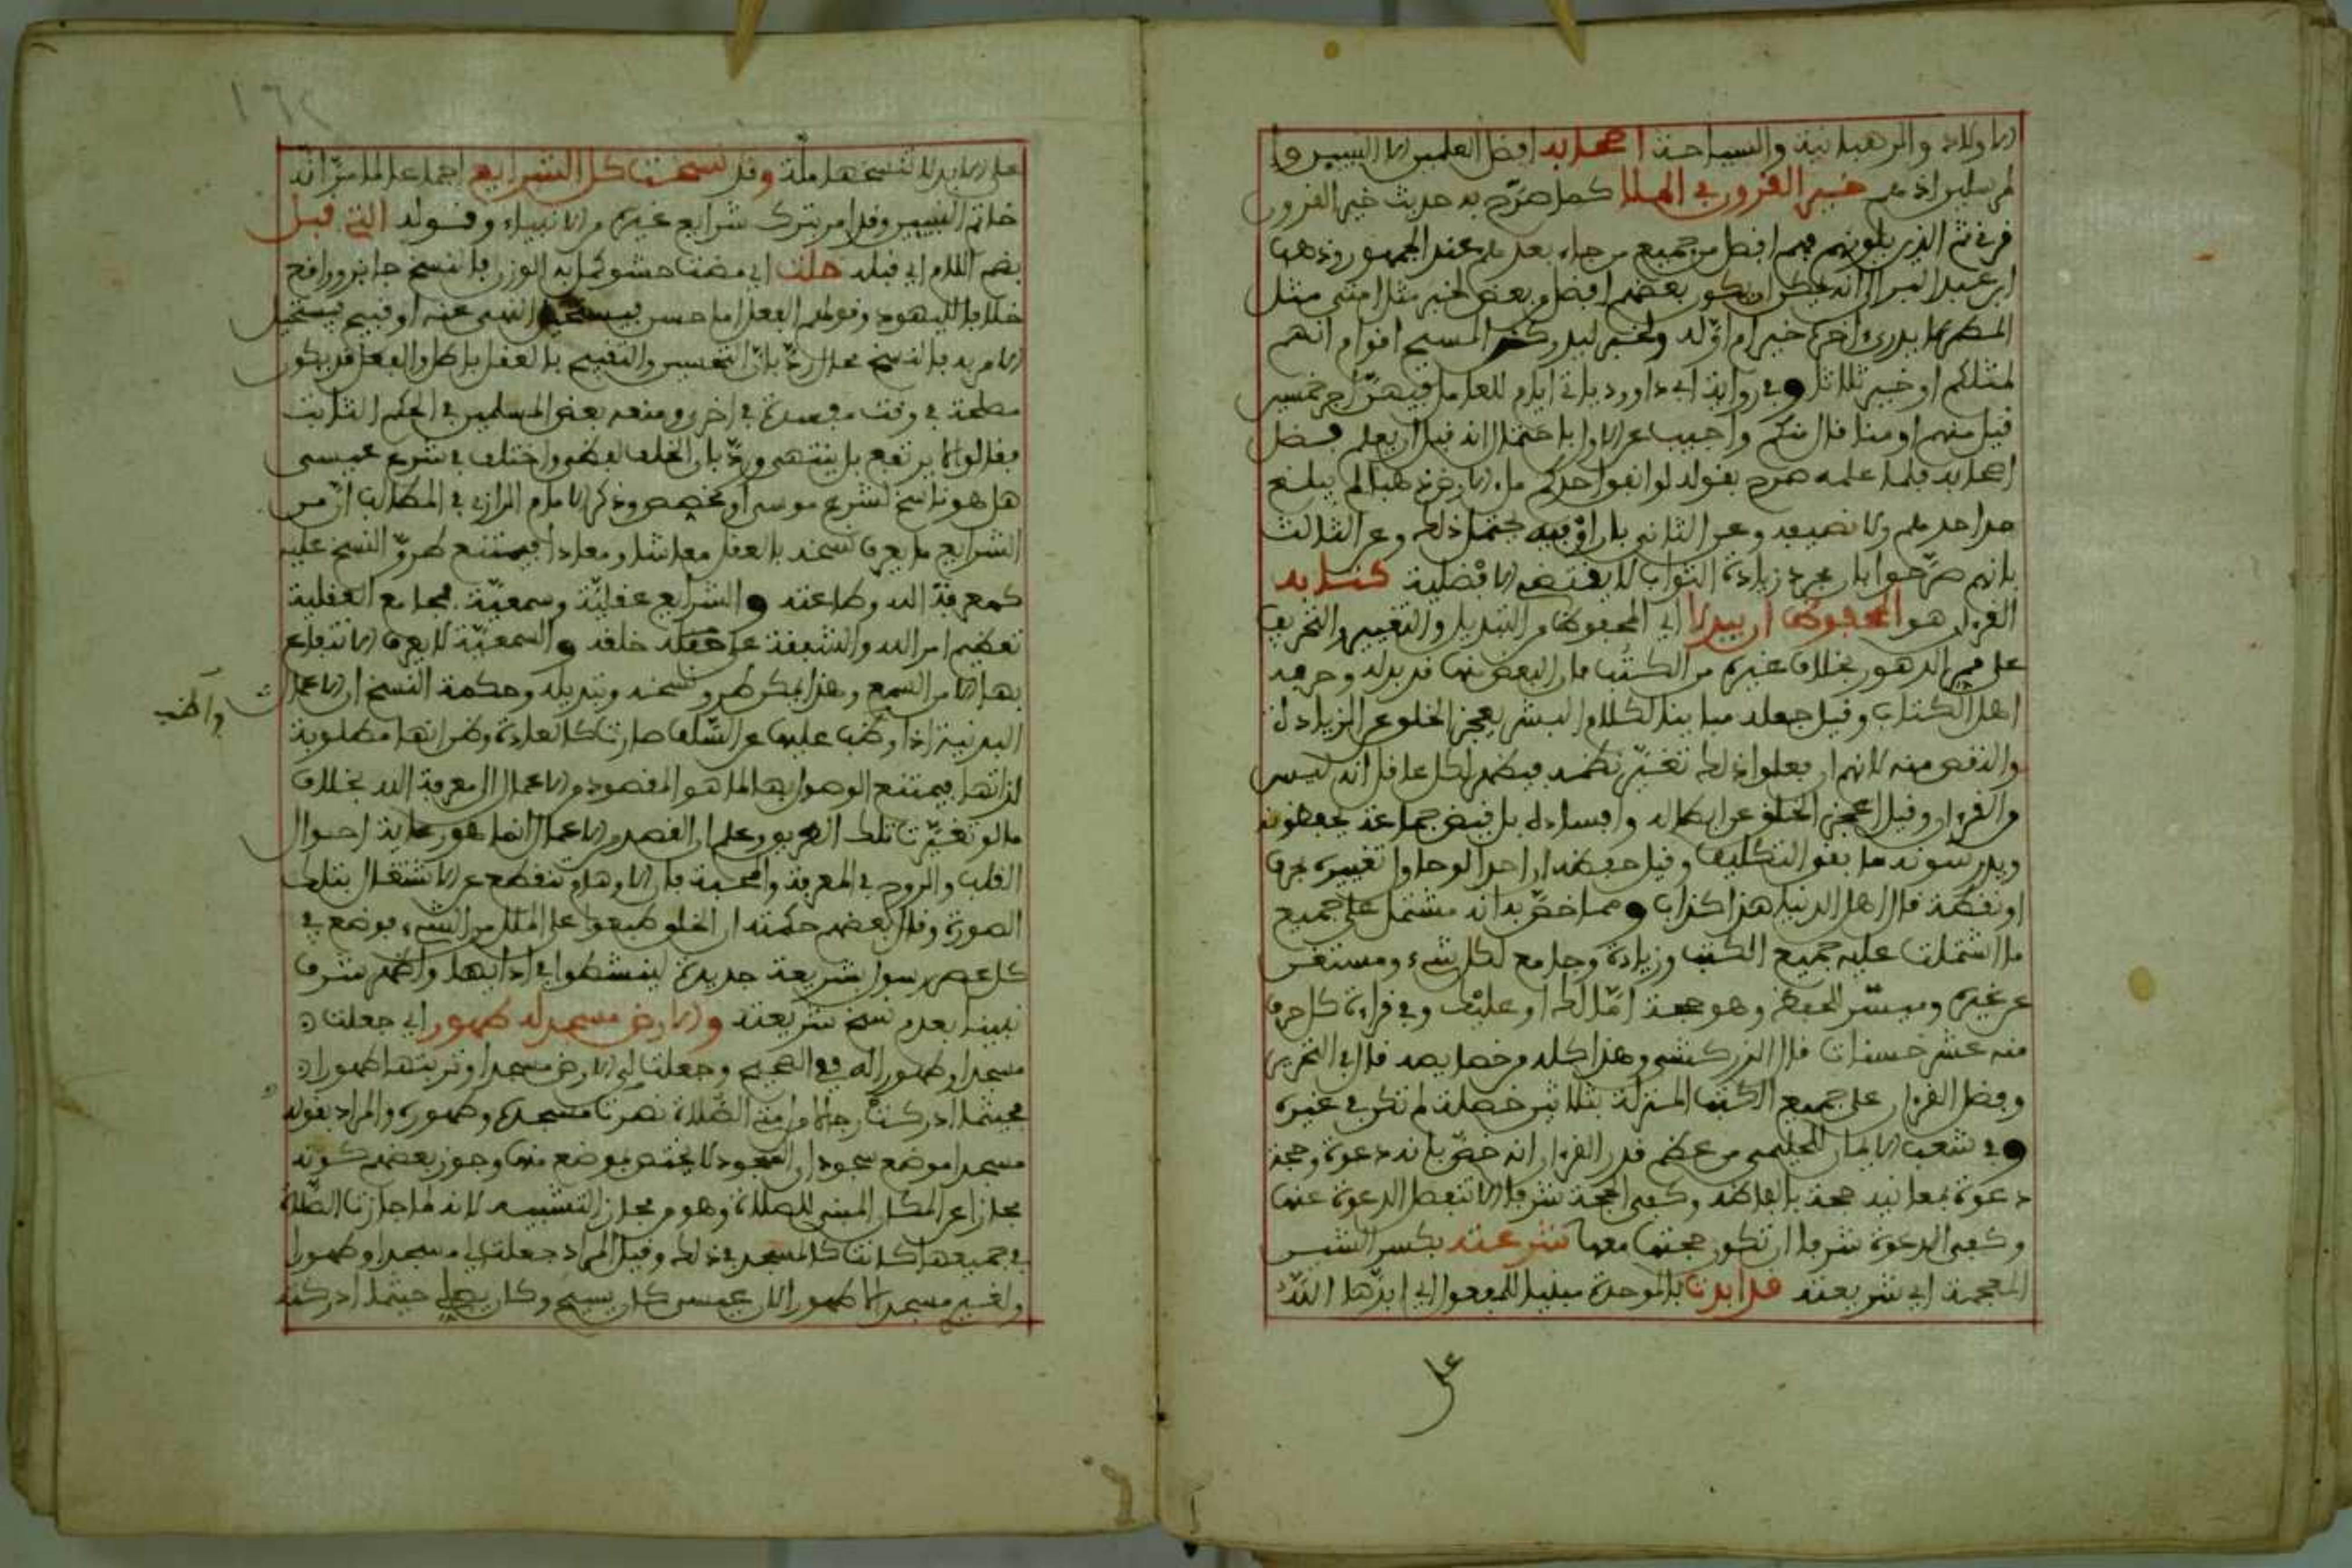 الاولاد والرهبانية والسياحة اصحابه افضل العلمين الا النبيين و
المرسلين اذ هم خير القرون في الملا كما صرّح به حديث خير القرون
قرني ثم الذين يلونهم فهم افضل من جميع من جاء بعدهم عند الجمهور وذهب
ابن عبد البر الى انه يمكن ان يكون بعضهم افضل وبعض لخبر مثل امتي مثل
المطر لا يدرى اخره خير ام اوّله ولخبر ليدركن المسيح اقوام انهم
لمثلكم او خير ثلاثا وفي رواية ابي داوود ياتي ايام للعامل فيهنّ اجر خمسين
قيل منهم او منا قال منكم واجيب عن الاول باحتمال انه قبل ان يعلم فضل
اصحابه فلما علمه صرح بقوله لو انفق احدكم ملء الارض ذهبا لم يبلغ
مد احدهم ولا نصيفه وعن الثاني بان او فيه تحتمل ذلك وعن الثالث
بانهم صرّحوا بان مجرد زيادة الثواب لا يقتضي الافضلية كتابه
القرءان هو المحفوظ ان يبدلا اي المحفوظ من التبديل والتغيير والتحريف
على ممر الدهور بخلاف غيره من الكتب فان البعض منها قد بدله وحرفه
اهل الكتاب وقيل جعله مباينا لكلام البشر يعجز الخلق عن الزيادة
والنقص منه لانهم ان فعلوا ذلك تغيّر نظمه فيظهر لكل عاقل انه ليس
من القرءان وقيل اعجز الخلق عن ابطاله وافساده بل قيض جماعة يحفظونه
ويدرسونه ما بقي التكليف وقيل حفظه ان احدا لو حاول تغييره بحرف
او نقطة قال اهل الدنيا هذا كذاب ومما خصّ به انه مشتمل على جميع
ما اشتملت عليه جميع الكتب وزيادة وجامع لكل شيء ومستغن
عن غيره وميسّر للحفظ وهو حجة امّا لك او عليك وفي قراءة كل حرف
منه عشر حسنات قال الزركشي وهذا كله من خصايصه قال في التحرير
وفضل القرءان على جميع الكتب المنزلة بثلاثين خصلة لم تكن في غيره
وفي شعب الايمان للحليمي من عظم قدر القرءان انه خصّ بانه دعوة وحجة
دعوة بمعانيه حجة بالفاظه وكفى الحجة شرفا الا تنفصل الدعوة عنها
وكفى الدعوة شرفا ان تكون حجتها معها شرعته بكسر الشين
المعجمة اي شريعته قد ابدت بالموحدة مبنيا للمفعول اي ابدّها اللّه
على
على الابد لا تنسخها ملّة وقد نسخت كل الشرايع اجماعا لما مرّ انه
خاتم النبيين وقد امر بترك شرايع غيره من الانبياء وقوله التي قبل
بضم اللام اي قبله خلت اي مضت حشو كمل به الوزن فالنسخ جايز وواقع
خلافا لليهود وقولهم الفعل اما حسن فيستحيل النهي عنه او قبيح فيستحيل
الامر به فالنسخ محال ردّ بانّ التحسين والتقبيح بالعقل باطل والفعل قد يكون
مصلحة في وقت مفسدة في اخر ومنعه بعض المسلمين في الحكم الثابت
فقالوا لا يرتفع بل ينتهي وردّ بان الخلف لفظي واختلف في شرع عيسى
هل هو ناسخ لشرع موسى او مخصص وذكر الامام الرازي في المطالب انّ من
الشرايع ما يعرف نسخه بالعقل معاشا ومعادا فيمتنع طروّ النسخ عليه
كمعرفة الله وطاعته والشرايع عقليّة وسمعيّة فمجامع العقلية
تعظيم امر الله والشفقة على خلقه والسمعيّة لا يعرف الانتفاع
بها الا من السمع وهذا يمكن طروّ نسخه وتبديله وحكمة النسخ ان الاعمال
واظب
البدنية اذا وظب عليها عن السّلف صارت كالعادة وظن انها مطلوبة
لذاتها فيمتنع الوصول بها لما هو المقصود من الاعمال من معرفة الله بخلاف
ما لو تغيّرت تلك الطريق وعلم ان القصد من الاعمال انما هو رعاية احوال
القلب والروح في المعرفة والمحبة فان الاوهام تنقطع عن الاشتغال بتلك
الصورة وقال بعضهم حكمته ان الخلق طبعوا على الملل من الشيء فوضع في
كل عصر رسول شريعة جديدة لينشطوا في ادايها واظهر شرف
نبينا بعدم نسخ شريعته والارض مسجد له طهور اي جعلت
مسجدا وطهورا له في الصحيح وجعلت لي الارض مسجدا وتربتها طهورا
فحيثما ادركت رجلا من امتي الصّلاة نصرت مسجده وطهوره والمراد بقوله
مسجدا موضع سجود اي السجود لا يختص بموضع منها وجوز بعضهم كونه
مجازا عن المكان المبني للصلاة وهو من مجاز التشبيه لانه لما جازت الصّلاة
في جميعها كانت كالمسجد في ذلك وقيل المراد جعلت لي مسجدا وطهورا
ولغيري مسجدا لا طهورا لان عيسى كان يسيح وكان يصلي حيثما ادركته